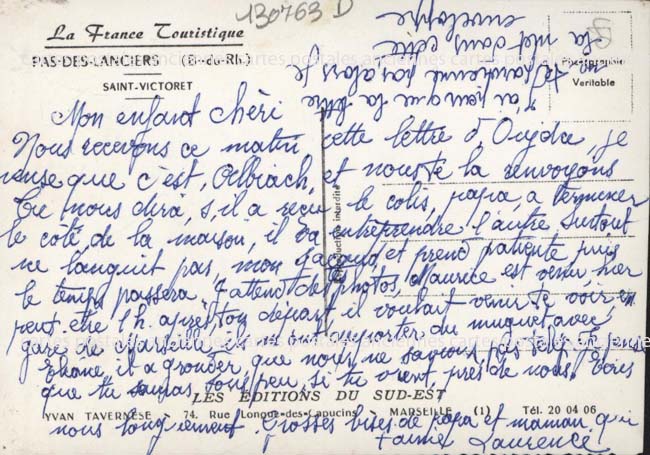 130763 D
La France Touristique
PAS-DES-LANCIERS (B-du-Rh.)
SAINT-VICTORET
Photographie
Véritable
Mon enfant chéri
Nous recevons ce matin cette lettre d'Oujda, je
pense que c'est, Olbiach, et nous te la renvoyons
Tu nous dira, s'il a reçu le colis, papa, a terminer
le côté, de la maison, il va entreprendre l'autre, surtout
ne languit pas, mon et prend patiente puis
le temps passera, j'attend des photos, Maurice est venu, hier
peut être 1 h. après ton départ il voulait venir te voir en
gare de il apporter du muguet avec
il a gronder, que nous ne savions pas
que tu sous peu, si tu vient, près de nous.
LES ÉDITIONS DU SUD-EST
YVAN TAVERNESE 74, Rue Longue-des-Capucins MARSEILLE (1) Tél. 20 04 06
nous longuement. Grosses bises de papa et maman qui
t'aime Laurence
J'ai peur que la lettre
ne te parvienne pas alors je
la met dans cette
enveloppe
Reproduction interdite
cartes postales anciennes